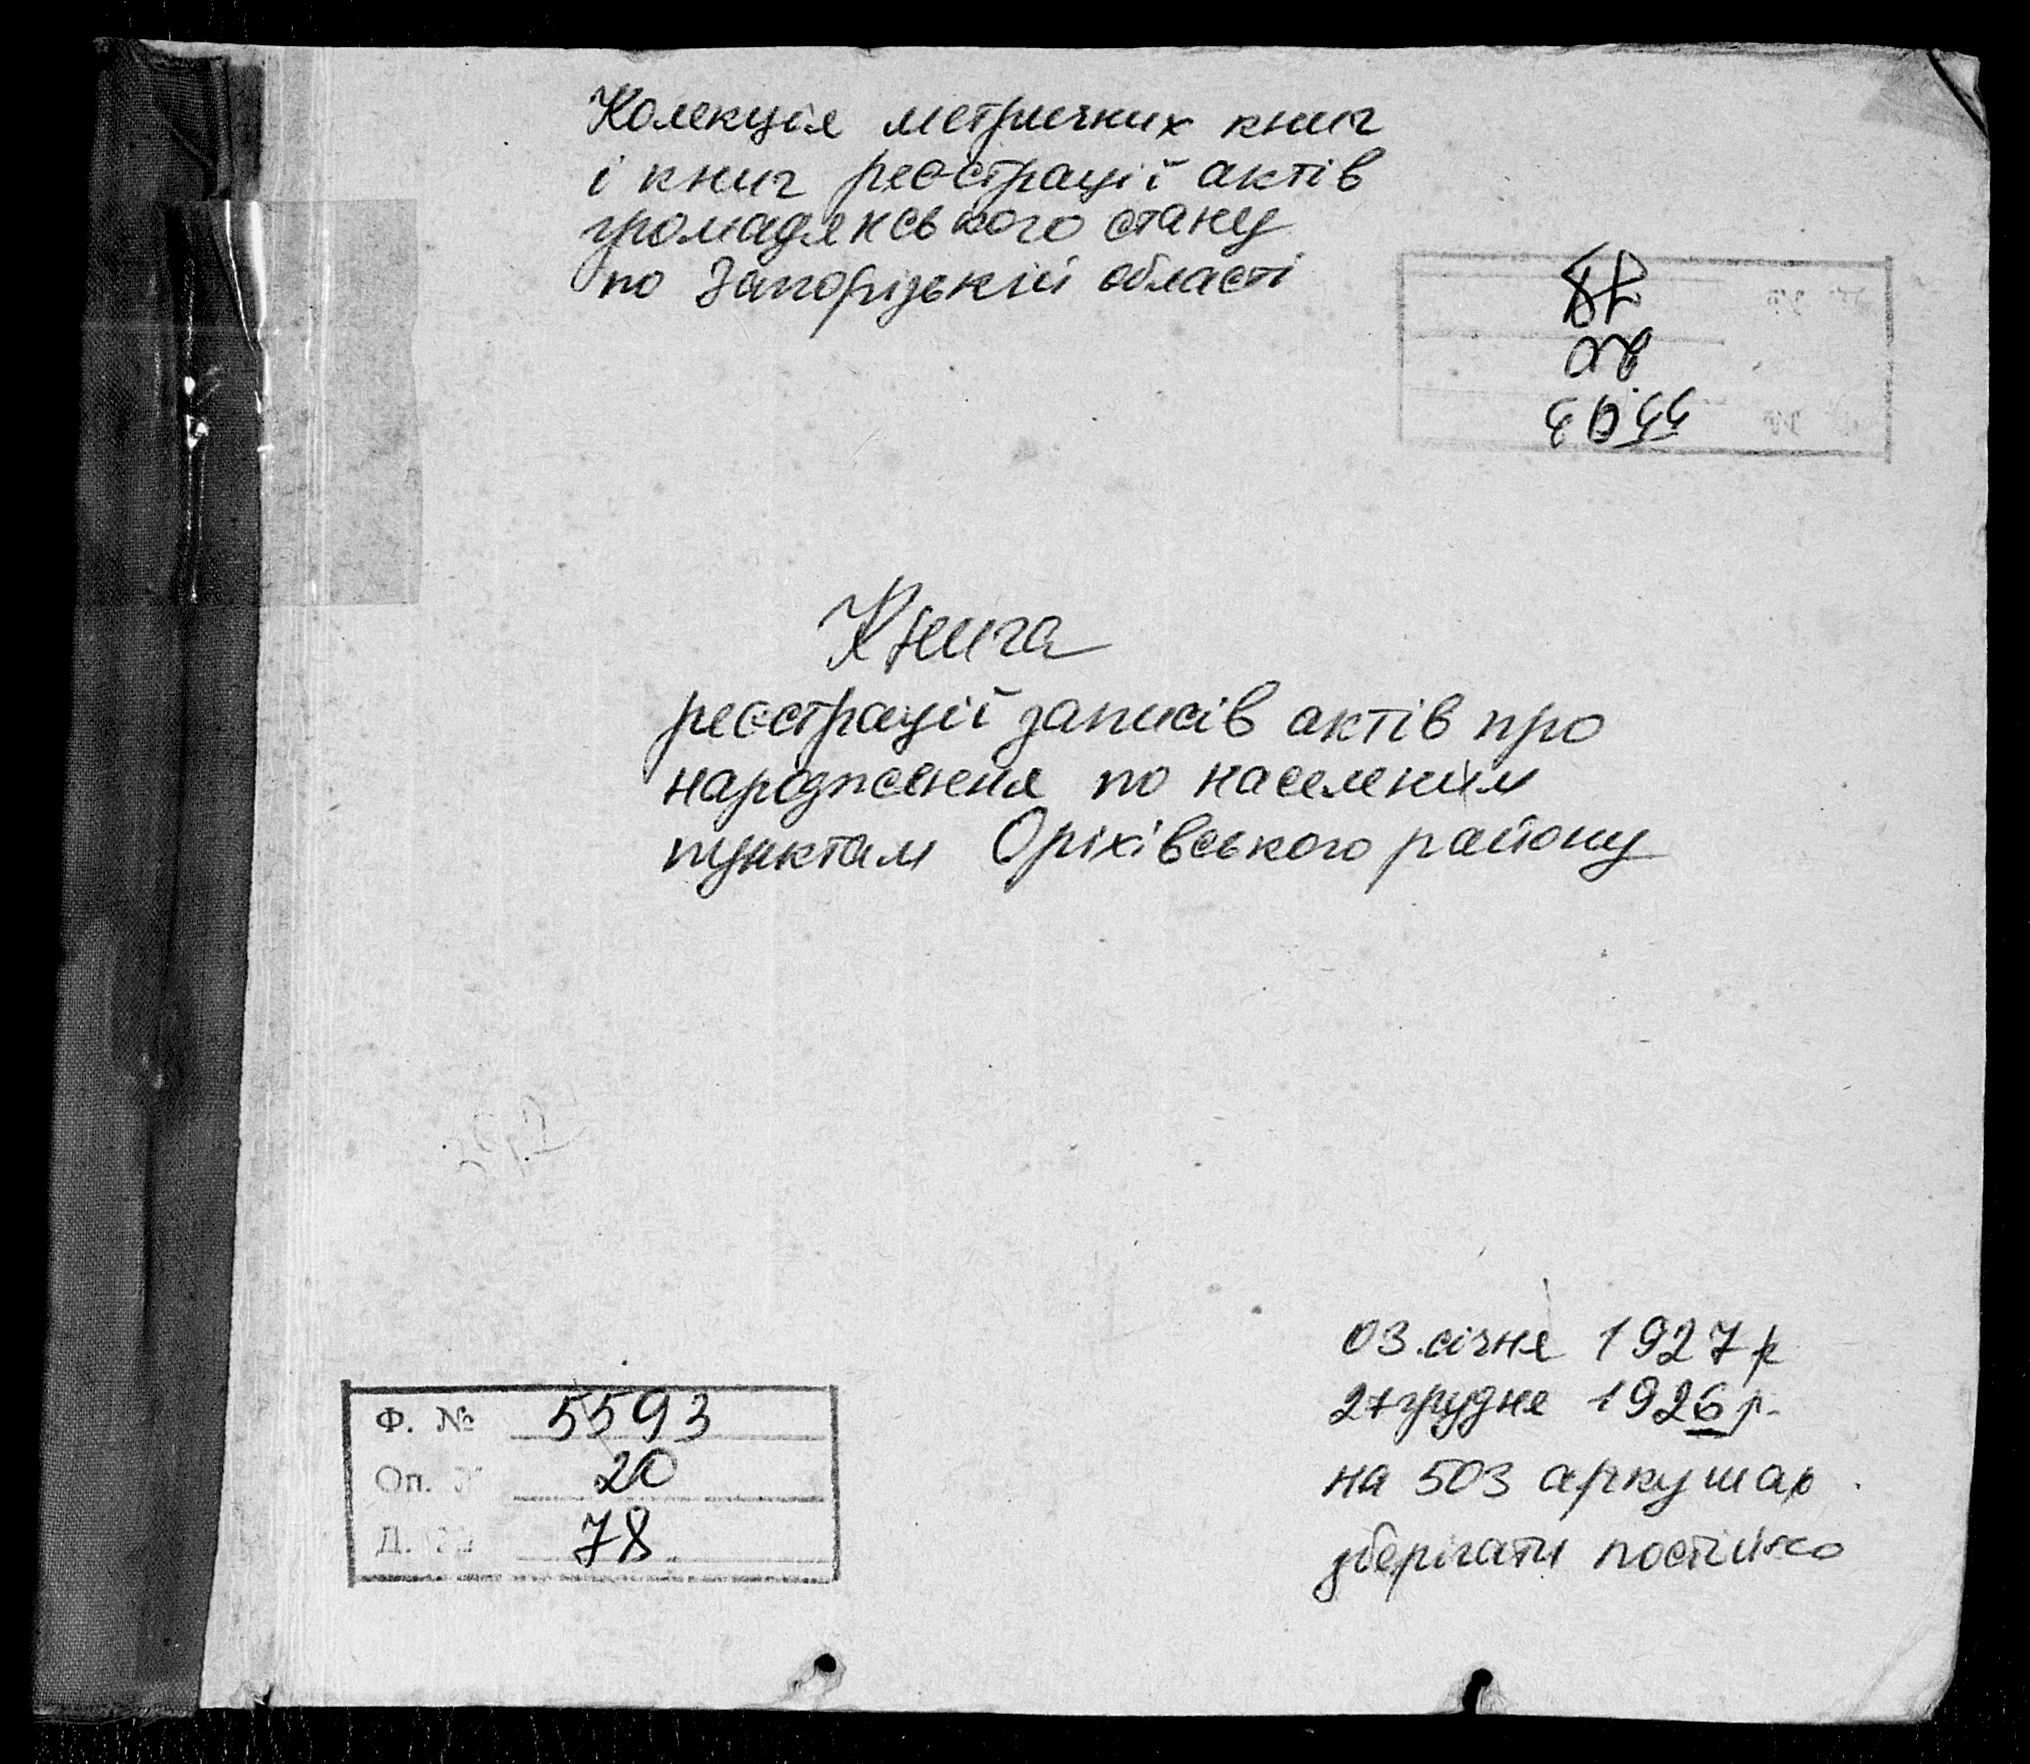 Колекція метричних книг
і книг реєстрації актів
громадянського стану
по Запорізькій області
78
20
5593
Книга
реєстрації записів актів про
народження по населеним
пунктам Оріхівського району
03 січня 1927 р
27 грудня 1926 р.
на 503 аркушах
зберігати постійно
Ф. № 5593
Оп. 20
Д. 78